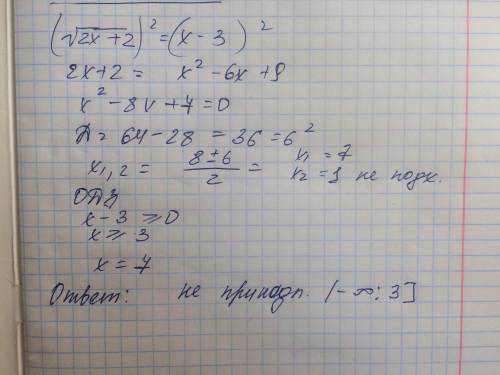 (√2x+2)² = (x - 3)²
2x+2 = x² - 6x + 9
x² - 8x + 7 = 0
Д = 64 - 28 = 36 = 6²
x₁,₂ = (8 ± 6)/2 = x₁ = 7 x₂ = 1 не подх.
ОДЗ
x - 3 ≥ 0
x ≥ 3
x = 7
Ответ: не принадл. (-∞; 3]